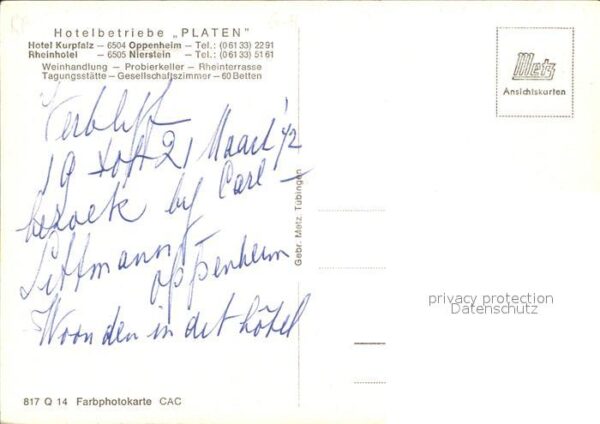 Hotelbetriebe „PLATEN"
Hotel Kurpfalz – 6504 Oppenheim – Tel.: (0 61 33) 22 91
Rheinhotel – 6505 Nierstein – Tel.: (0 61 33) 51 61
Weinhandlung – Probierkeller – Rheinterrasse
Tagungsstätte – Gesellschaftszimmer – 60 Betten
Metz
Ansichtskarten
Verblijf
19 21 Maart
bezoek by Carl
Littmann
Oppenheim
Woonden in dit hôtel
Gebr. Metz, Tübingen
privacy protection
Datenschutz
817 Q 14 Farbphotokarte CAC